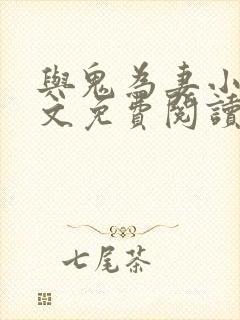 與鬼為妻小
文免費閱讀
七尾茶